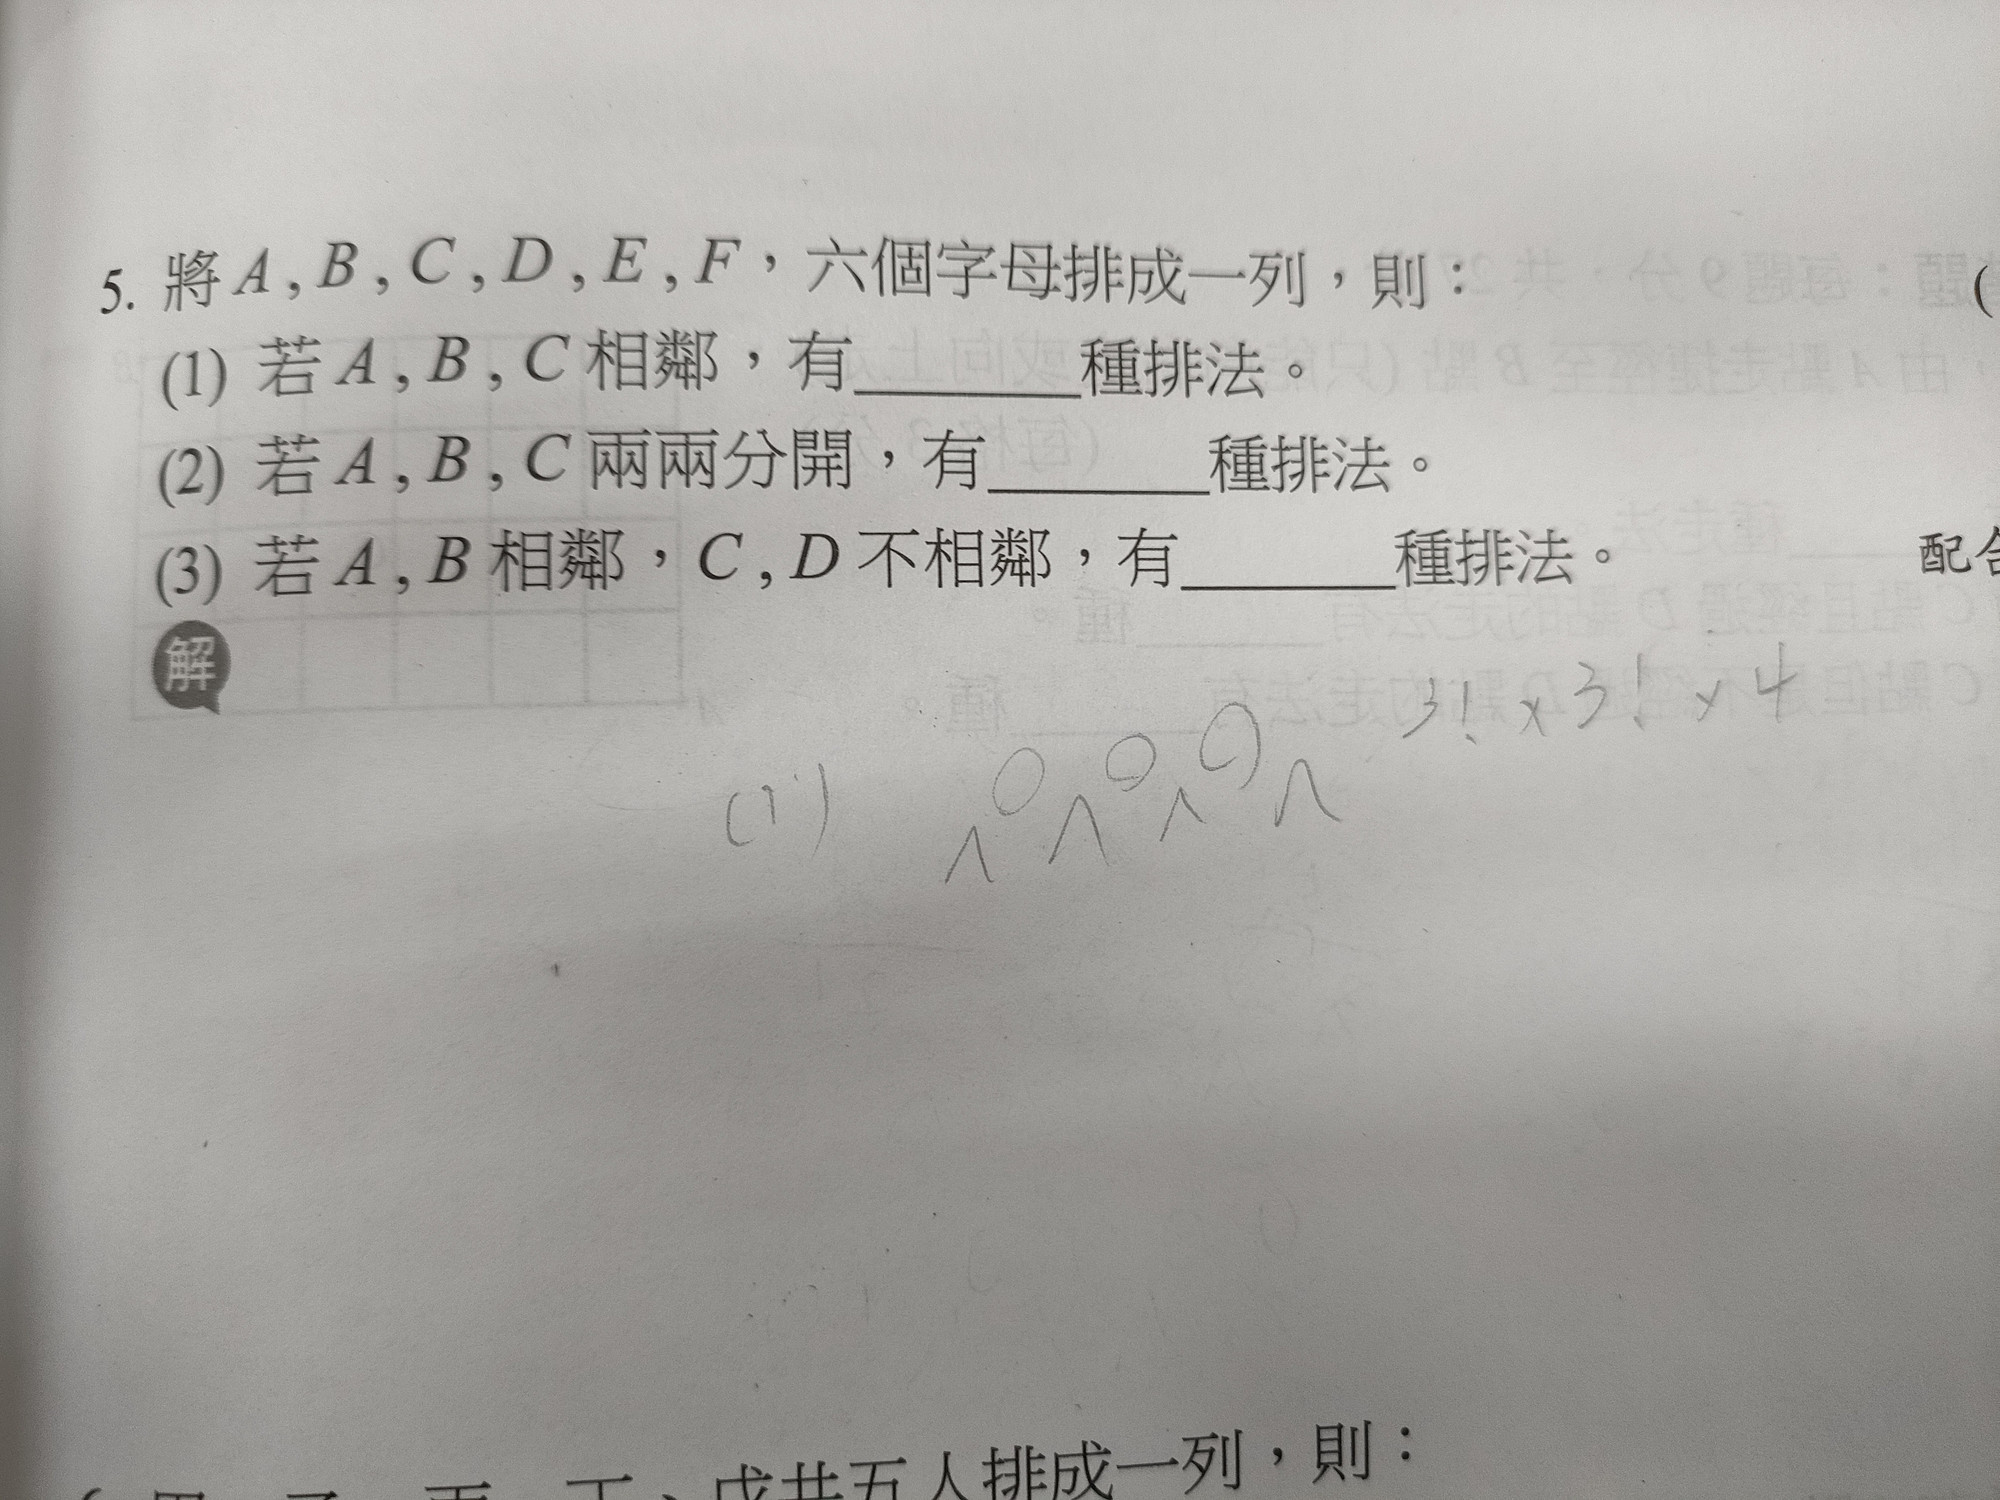 5. 將 A , B , C , D , E , F，六個字母排成一列，則： (
(1) 若 A , B , C 相鄰，有______種排法。
(2) 若 A , B , C 兩兩分開，有______種排法。
(3) 若 A , B 相鄰，C , D 不相鄰，有______種排法。 配合
解
3! × 3! × 4
(1)
戊共五人排成一列，則：